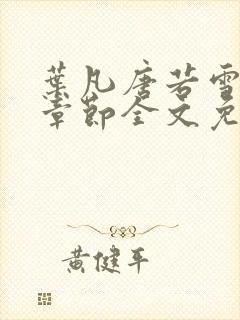 葉凡唐若雪
章節全文免
黃健平